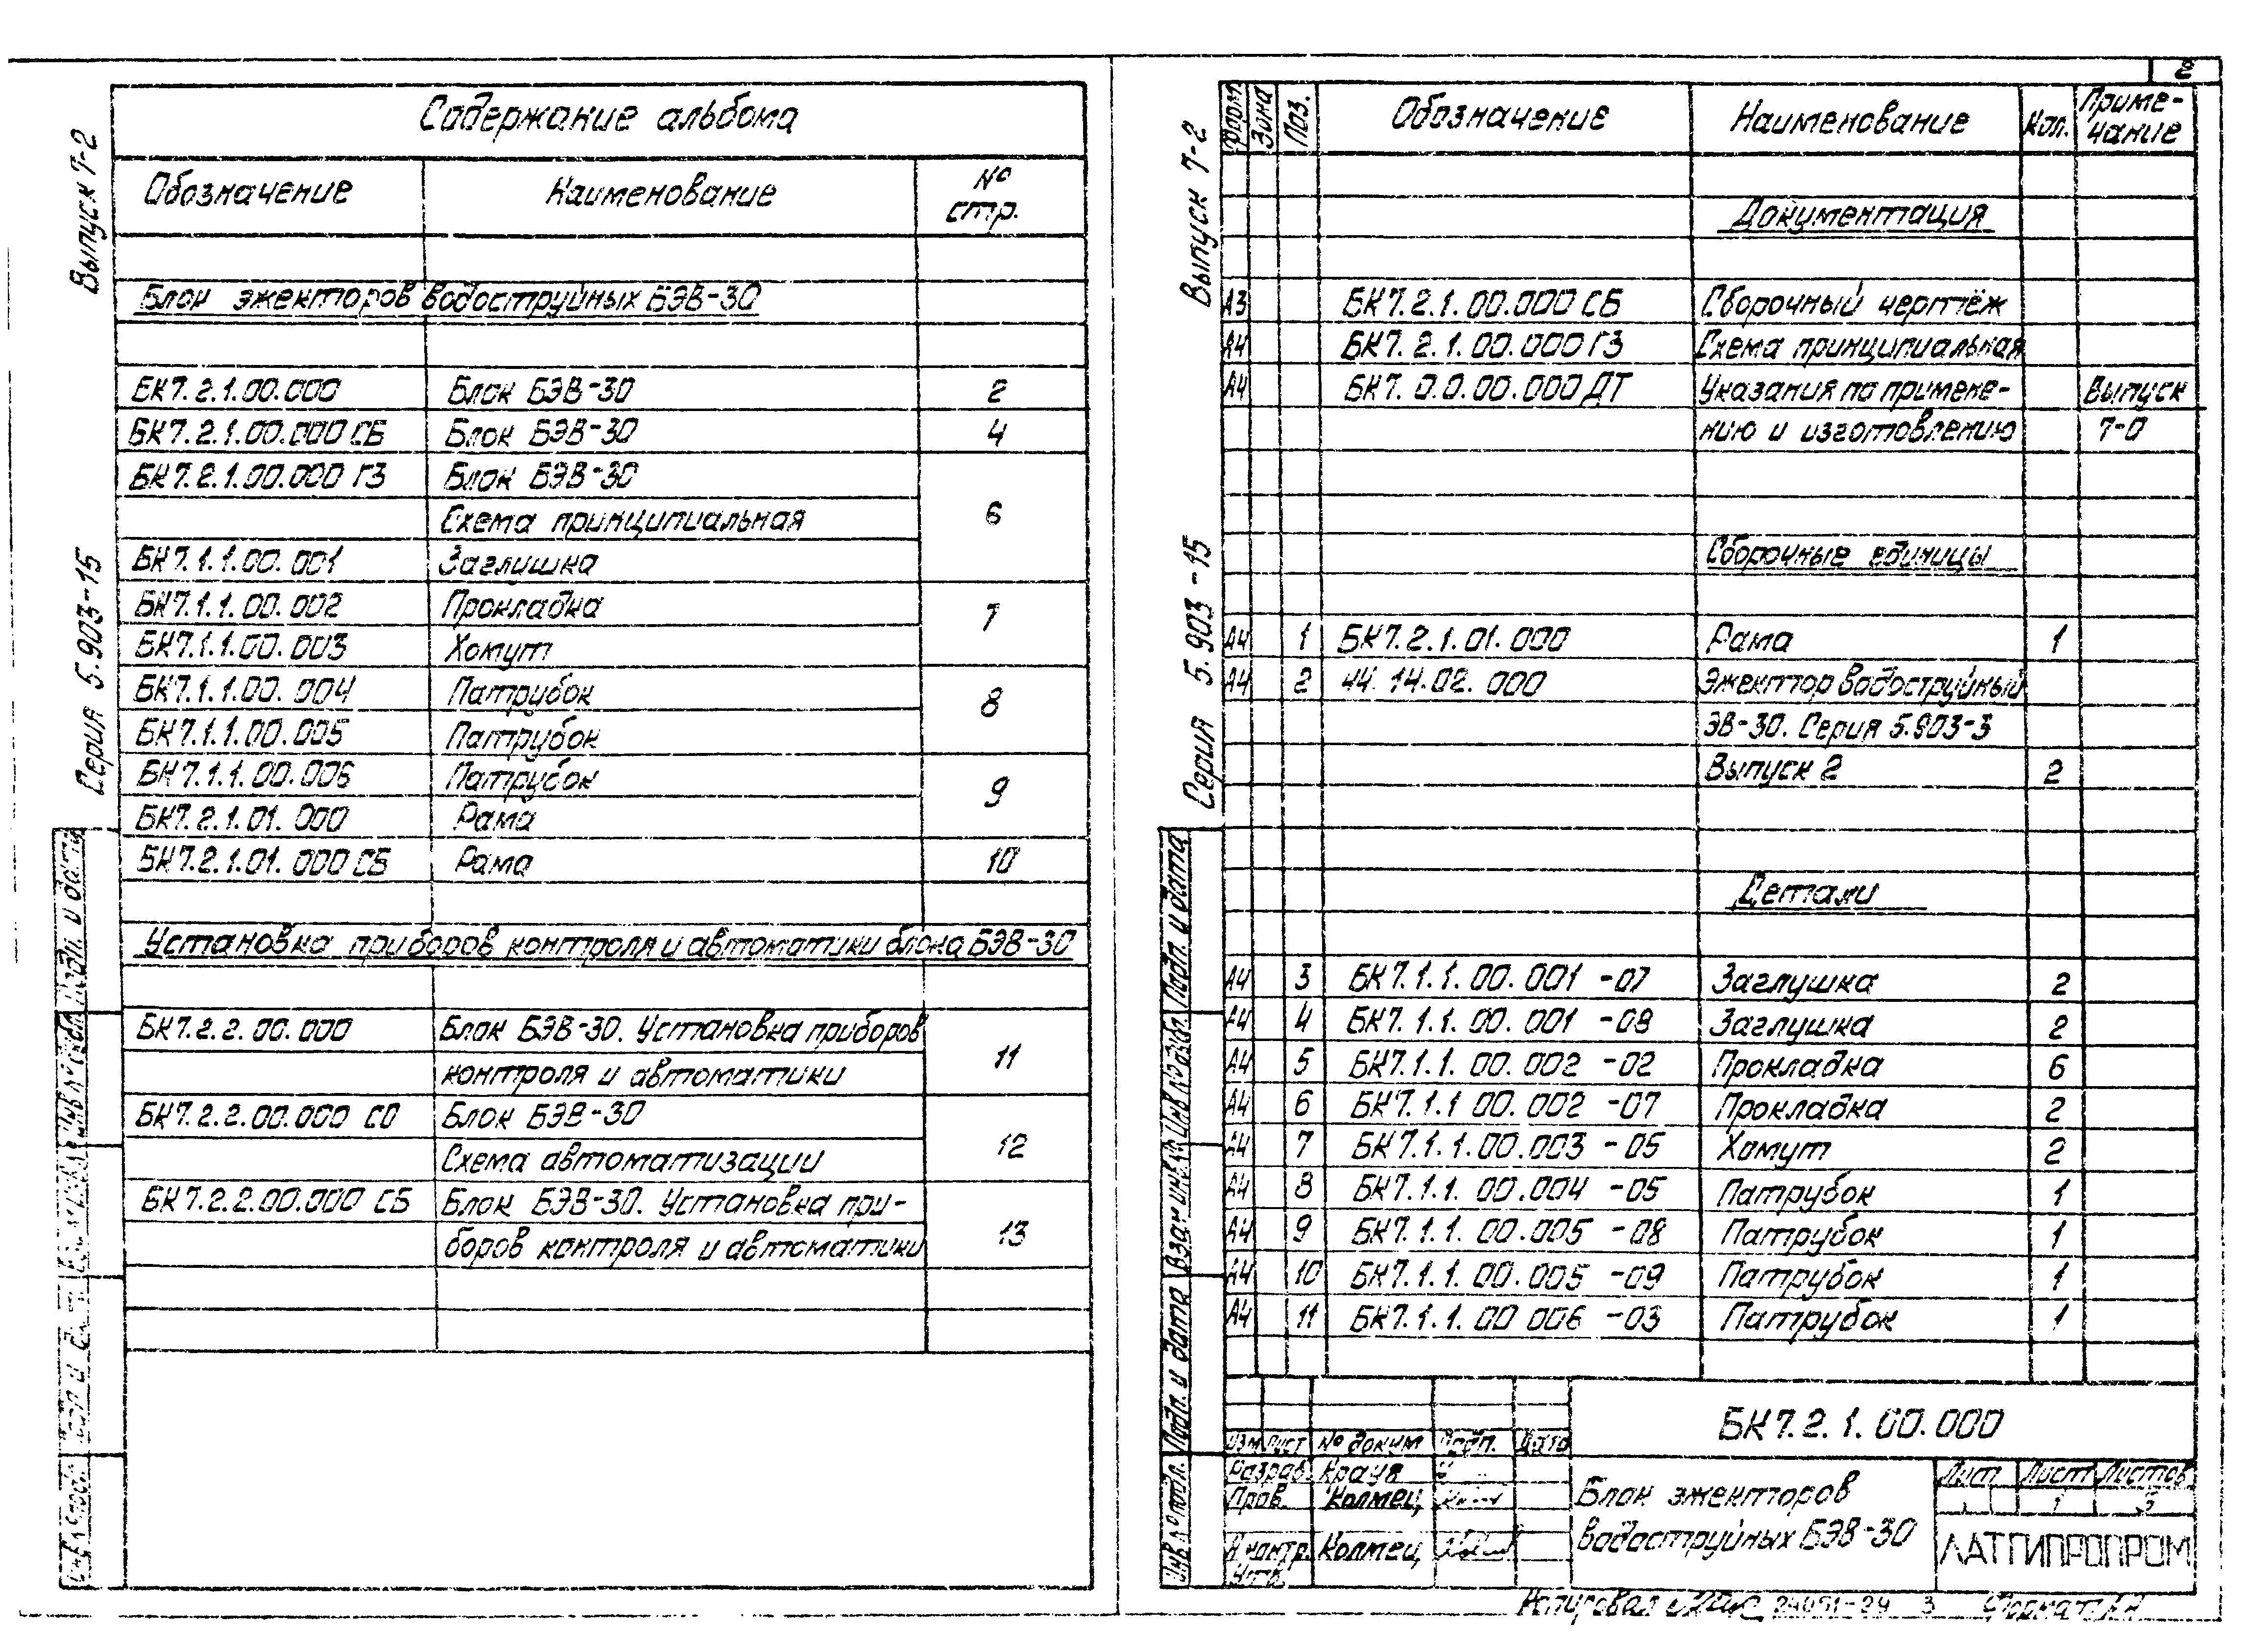 Содержание альбома
Обозначение Наименование № стр.
Блок эжекторов водоструйных БЭВ-30
БК7.2.1.00.000 Блок БЭВ-30 2
БК7.2.1.00.000 СБ Блок БЭВ-30 4
БК7.2.1.00.000 Г3 Блок БЭВ-30
Схема принципиальная 6
БК7.1.1.00.001 Заглушка
БК7.1.1.00.002 Прокладка 7
БК7.1.1.00.003 Хомут
БК7.1.1.00.004 Патрубок 8
БК7.1.1.00.005 Патрубок
БК7.1.1.00.006 Патрубок 9
БК7.2.1.01.000 Рама
БК7.2.1.01.000 СБ Рама 10
Установка приборов контроля и автоматики блока БЭВ-30
БК7.2.2.00.000 Блок БЭВ-30. Установка приборов
контроля и автоматики 11
БК7.2.2.00.000 СО Блок БЭВ-30
Схема автоматизации 12
БК7.2.2.00.000 СБ Блок БЭВ-30. Установка при-
боров контроля и автоматики 13
Серия 5.903-15 Выпуск 7-2
2
Форм. Зона Поз. Обозначение Наименование Кол. Приме-
чание
Документация
А3 БК7.2.1.00.000 СБ Сборочный чертёж
А4 БК7.2.1.00.000 Г3 Схема принципиальная
А4 БК7.0.0.00.000 ДТ Указания по примене- Выпуск
нию и изготовлению 7-0
Сборочные единицы
А4 1 БК7.2.1.01.000 Рама 1
А4 2 44.14.02.000 Эжектор водоструйный
ЭВ-30. Серия 5.903-3
Выпуск 2 2
Детали
А4 3 БК7.1.1.00.001 -07 Заглушка 2
А4 4 БК7.1.1.00.001 -08 Заглушка 2
А4 5 БК7.1.1.00.002 -02 Прокладка 6
А4 6 БК7.1.1 00.002 -07 Прокладка 2
А4 7 БК7.1.1.00.003 -05 Хомут 2
А4 8 БК7.1.1.00.004 -05 Патрубок 1
А4 9 БК7.1.1.00.005 -08 Патрубок 1
А4 10 БК7.1.1.00.005 -09 Патрубок 1
А4 11 БК7.1.1.00 006 -03 Патрубок 1
Серия 5.903-15 Выпуск 7-2
Инв № подл. Подп. и дата Взам инв № Инв № дубл. Подп. и дата
БК7.2.1.00.000
Изм Лист № докум Подп. Дата
Разраб. Крауя
Пров. Колмец
Н контр. Колмец
Утв.
Блок эжекторов
водоструйных БЭВ-30
Лит Лист Листов
1 3
ЛАТГИПРОПРОМ
Копировал 24051-29 3 Формат А4